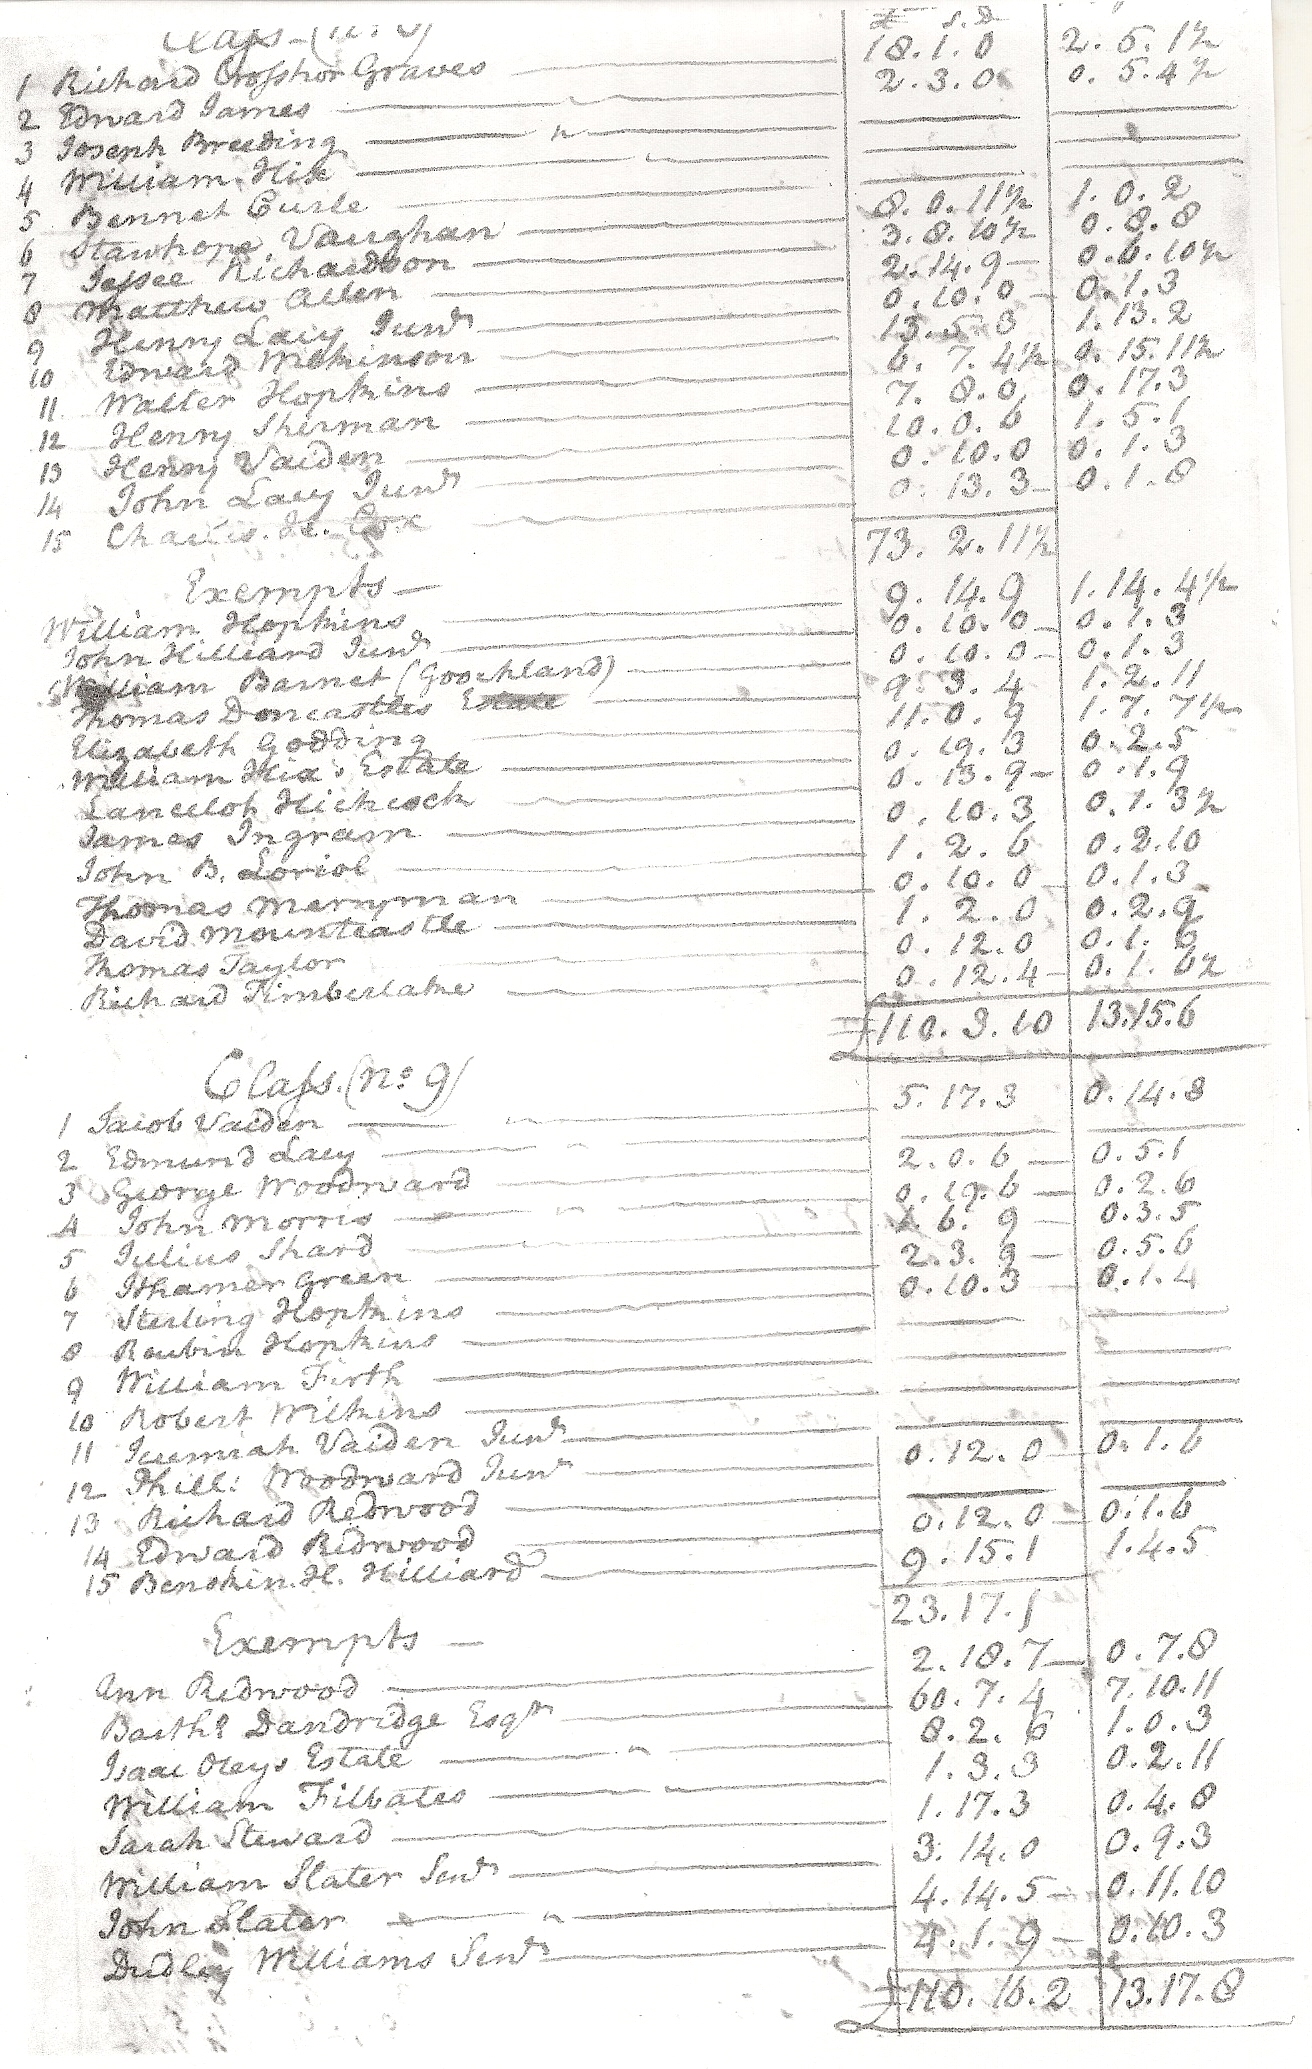 £ S. D
Class (No. 8)
1 Richard Crosshor Graves 18.1.0 2.5.1½
2 Edward James 2.3.0 0.5.4½
3 Joseph Breeding
4 William Hix
5 Bennet Curle
6 Stanhope Vaughan 8.0.11½ 1.0.2
7 Jessee Richardson 3.8.10½ 0.8.8
8 Matthew Allen 2.14.9 0.6.10½
9 Henry Lacy Junr 0.10.0 0.1.3
10 Edward Wilkinson 13.5.3 1.13.2
11 Walter Hopkins 6.7.4½ 0.15.11½
12 Henry Sherman 7.8.0 0.17.3
13 Henry Vaiden 10.0.6 1.5.1
14 John Lacy Junr 0.10.0 0.1.3
15 Charles. H. Cox 0.13.3 0.1.8
73.2.11½
Exempts
William Hopkins 9.14.9 1.14.4½
John Hilliard Junr 0.10.0 0.1.3
William Barnet (Goochland) 0.10.0 0.1.3
Thomas Doncastles Estate 9.3.4 1.2.11
Elizabeth Godding 11.0.9 1.7.7½
William Hix's Estate 0.19.3 0.2.5
Lancelot Hichcock 0.13.9 0.1.9
James Ingram 0.10.3 0.1.3½
John B. Loriol 1.2.6 0.2.10
Thomas Merryman 0.10.0 0.1.3
David Mountcastle 1.2.0 0.2.9
Thomas Taylor 0.12.0 0.1.6
Richard Timberlake 0.12.4 0.1.6½
£110.3.10 13.15.6
Class. (No. 9)
1 Jacob Vaiden 5.17.3 0.14.8
2 Edmund Lacy
3 George Woodward 2.0.6 0.5.1
4 John Morris 0.19.6 0.2.6
5 Julius Shard 1.6.9 0.3.5
6 Ithamer Green 2.3.9 0.5.6
7 Sterling Hopkins 0.10.3 0.1.4
8 Reubin Hopkins
9 William Firth
10 Robert Wilkins
11 Jeremiah Vaiden Junr
12 Phill: Woodward Junr 0.12.0 0.1.6
13 Richard Redwood
14 Edward Redwood 0.12.0 0.1.6
15 Benskin. H. Hilliard 9.15.1 1.4.5
23.17.1
Exempts
Ann Redwood 2.18.7 0.7.8
Barthw Dandridge Esqr 60.7.4 7.10.11
Isaac Oleys Estate 8.2.6 1.0.3
William Filbates 1.3.3 0.2.11
Sarah Steward 1.17.3 0.4.8
William Slater Senr 3.14.0 0.9.3
John Slater 4.14.5 0.11.10
Dudley Williams Senr 4.1.9 0.10.3
£110.16.2 13.17.8